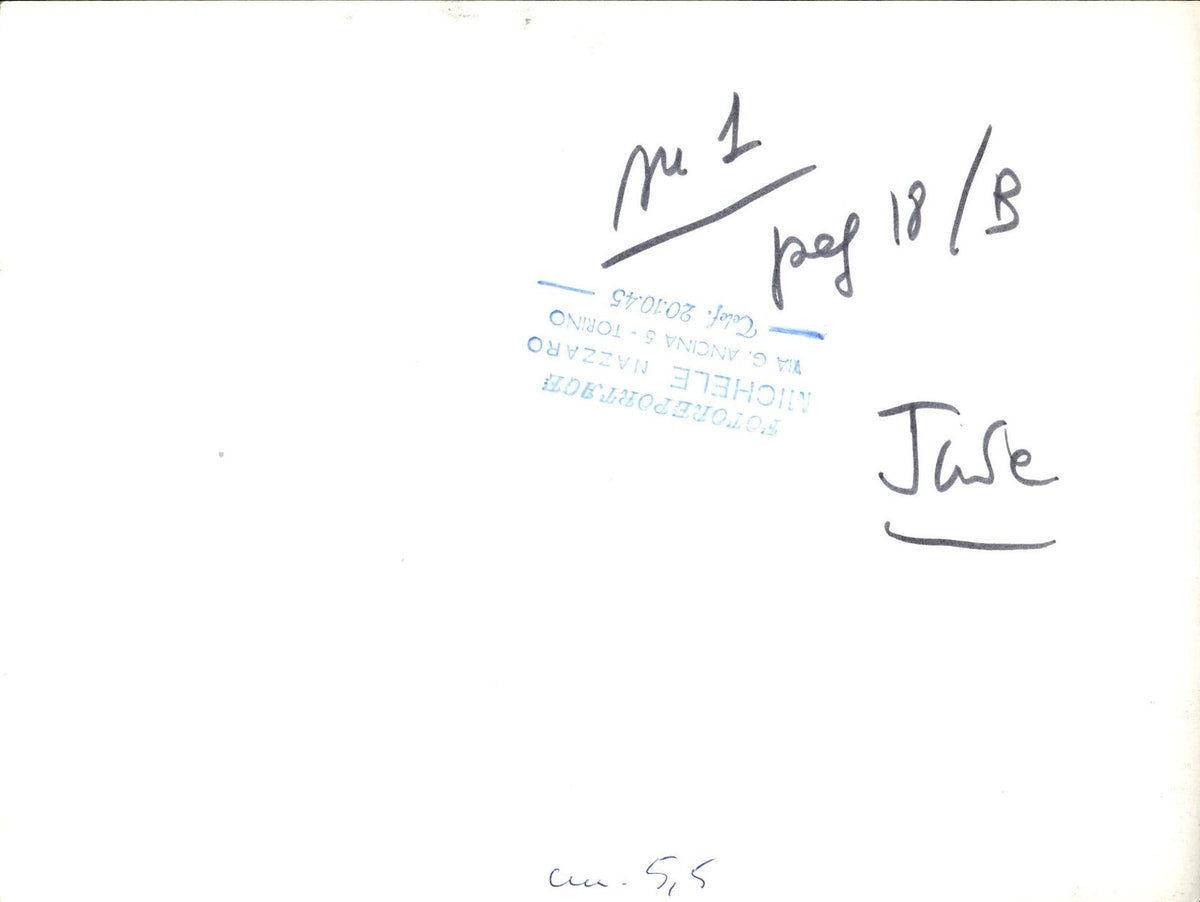 nu 1
pag 18/B
FOTOREPORTAGE
MICHELE NAZZARO
VIA G. ANCINA 5 - TORINO
Telef. 20.10.45
cm. 5,5